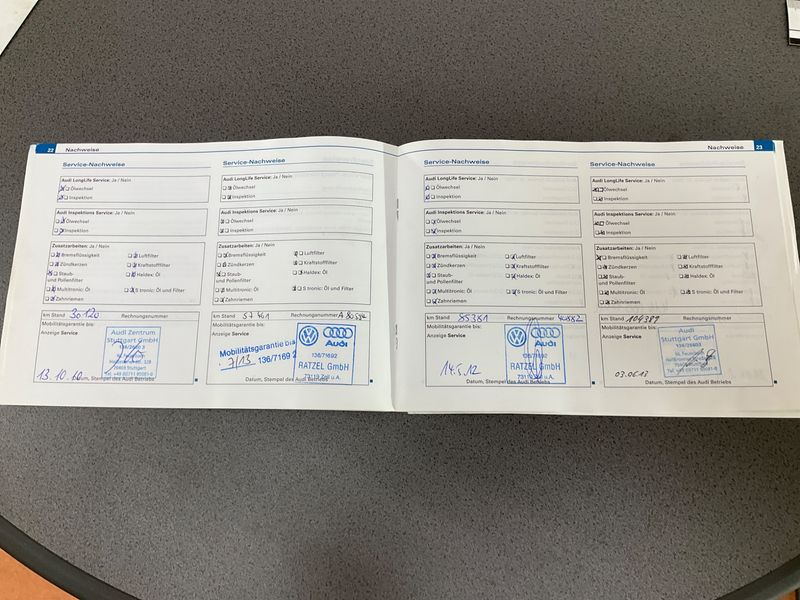 22 Nachweise
Service-Nachweise
Audi LongLife Service: Ja / Nein
Ölwechsel
Inspektion
Audi Inspektions Service: Ja / Nein
Ölwechsel
Inspektion
Zusatzarbeiten: Ja / Nein
Bremsflüssigkeit
Luftfilter
Zündkerzen
Kraftstofffilter
Staub-
und Pollenfilter
Haldex: Öl
Multitronic: Öl
S tronic: Öl und Filter
Zahnriemen
km Stand 30.120 Rechnungsnummer
Mobilitätsgarantie bis:
Anzeige Service
Audi Zentrum
Stuttgart GmbH
70469 Stuttgart
13.10.10
Datum, Stempel des Audi Betriebs
Service-Nachweise
Audi LongLife Service: Ja / Nein
Ölwechsel
Inspektion
Audi Inspektions Service: Ja / Nein
Ölwechsel
Inspektion
Zusatzarbeiten: Ja / Nein
Bremsflüssigkeit
Luftfilter
Zündkerzen
Kraftstofffilter
Staub-
und Pollenfilter
Haldex: Öl
Multitronic: Öl
S tronic: Öl und Filter
Zahnriemen
km Stand Rechnungsnummer
Mobilitätsgarantie bis:
Anzeige Service
Mobilitätsgarantie bis
7/13 136/7169 2
Audi
136/71692
RATZEL GmbH
Datum, Stempel des Audi Betriebs
Nachweise 23
Service-Nachweise
Audi LongLife Service: Ja / Nein
Ölwechsel
Inspektion
Audi Inspektions Service: Ja / Nein
Ölwechsel
Inspektion
Zusatzarbeiten: Ja / Nein
Bremsflüssigkeit
Luftfilter
Zündkerzen
Kraftstofffilter
Staub-
und Pollenfilter
Haldex: Öl
Multitronic: Öl
S tronic: Öl und Filter
Zahnriemen
km Stand 85381 Rechnungsnummer
Mobilitätsgarantie bis:
Anzeige Service
Audi
136/71692
RATZEL GmbH
14.5.12
Datum, Stempel des Audi Betriebs
Service-Nachweise
Audi LongLife Service: Ja / Nein
Ölwechsel
Inspektion
Audi Inspektions Service: Ja / Nein
Ölwechsel
Inspektion
Zusatzarbeiten: Ja / Nein
Bremsflüssigkeit
Luftfilter
Zündkerzen
Kraftstofffilter
Staub-
und Pollenfilter
Haldex: Öl
Multitronic: Öl
S tronic: Öl und Filter
Zahnriemen
km Stand 104387 Rechnungsnummer
Mobilitätsgarantie bis:
Anzeige Service
Audi
Stuttgart GmbH
03.06.13
Datum, Stempel des Audi Betriebs